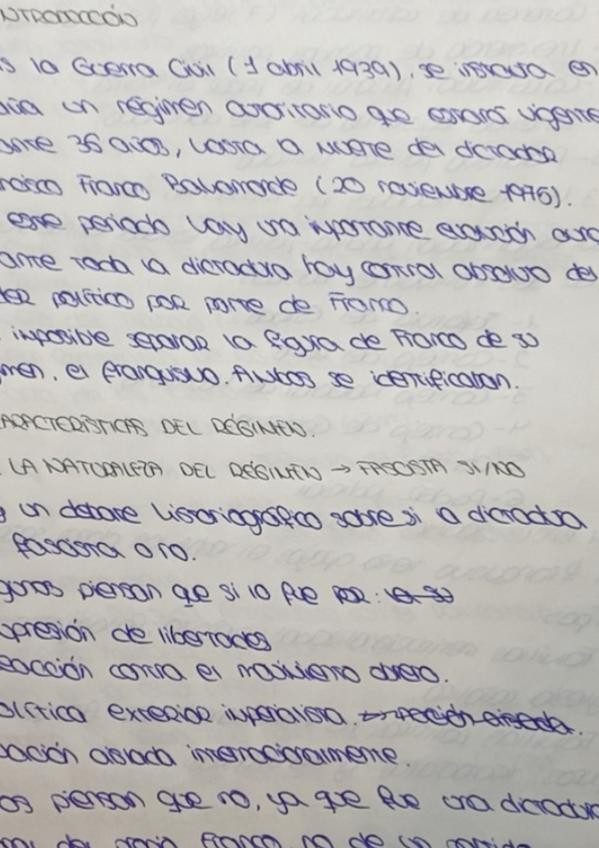 INTRODUCCIÓN
s la Guerra Civil (1 abril 1939), se instaura en
ña un régimen autoritario que estará vigente
ante 36 años, hasta la muerte del dictador
ncisco Franco Bahamonde (20 noviembre 1975).
este periodo hay una importante evolución aunq
ante toda la dictadura hay control absoluto del
der político por parte de Franco.
imposible separar la figura de Franco de su
men, el franquismo. Ambos se identifican.
ARACTERÍSTICAS DEL RÉGIMEN.
LA NATURALEZA DEL RÉGIMEN → FASCISTA SI/NO
un debate historiográfico sobre si la dictadura
fascista o no.
gunos piensan que si lo fue por:
upresión de libertades
eacción contra el movimiento obrero.
olítica exterior imperialista.
uación aislada internacionalmente.
os piensan que no, ya que fue una dictadura
Franco, no de un